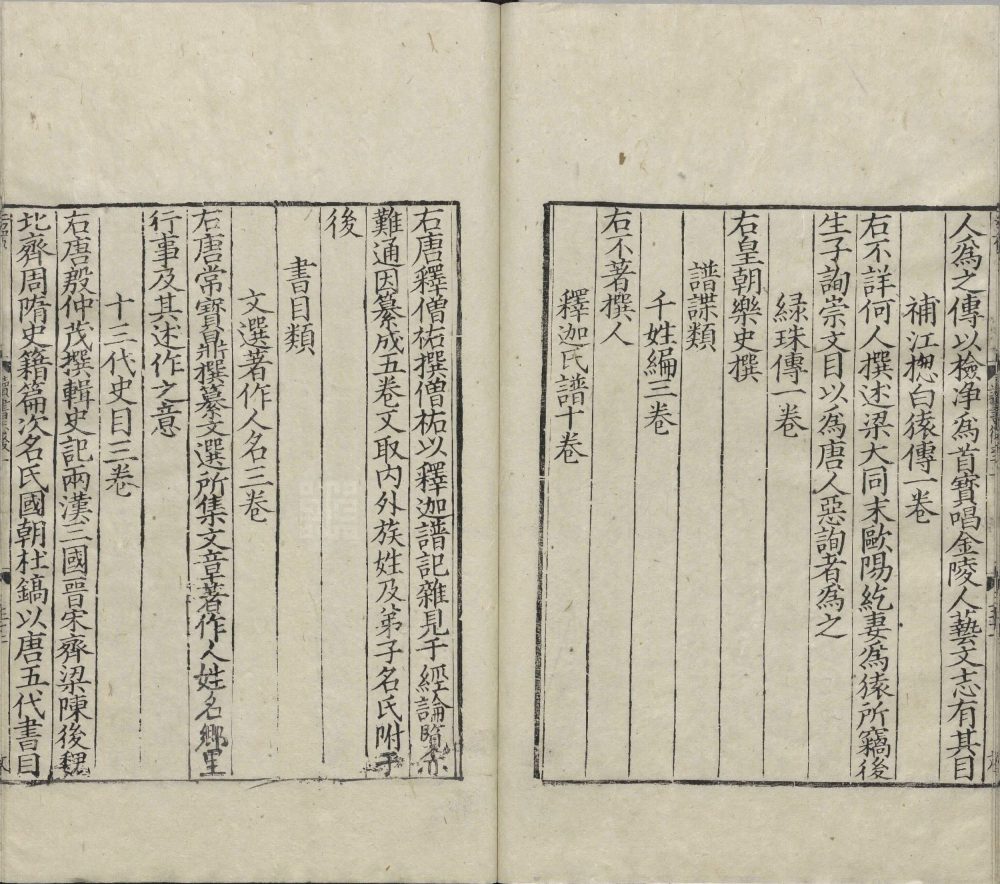 人爲之傳以檢淨爲首寶唱金陵人藝文志有其目
補江揔白猿傳一卷
右不詳何人撰述梁大同末歐陽紇妻爲猿所竊後
生子詢崇文目以爲唐人惡詢者爲之
緑珠傳一卷
右皇朝樂史撰
譜諜類
千姓編三卷
右不著撰人
釋迦氏譜十卷
右唐釋僧祐撰僧祐以釋迦譜記雜見于經論覽
難通因纂成五卷又取内外族姓及弟子名氏附于
後
書目類
文選著作人名三卷
右唐常寶鼎撰纂文選所集文章著作人姓名鄉里
行事及其述作之意
十三代史目三卷
右唐殷仲茂撰輯史記兩漢三國晉宋齊梁陳後魏
北齊周隋史籍篇次名氏國朝杜鎬以唐五代書目